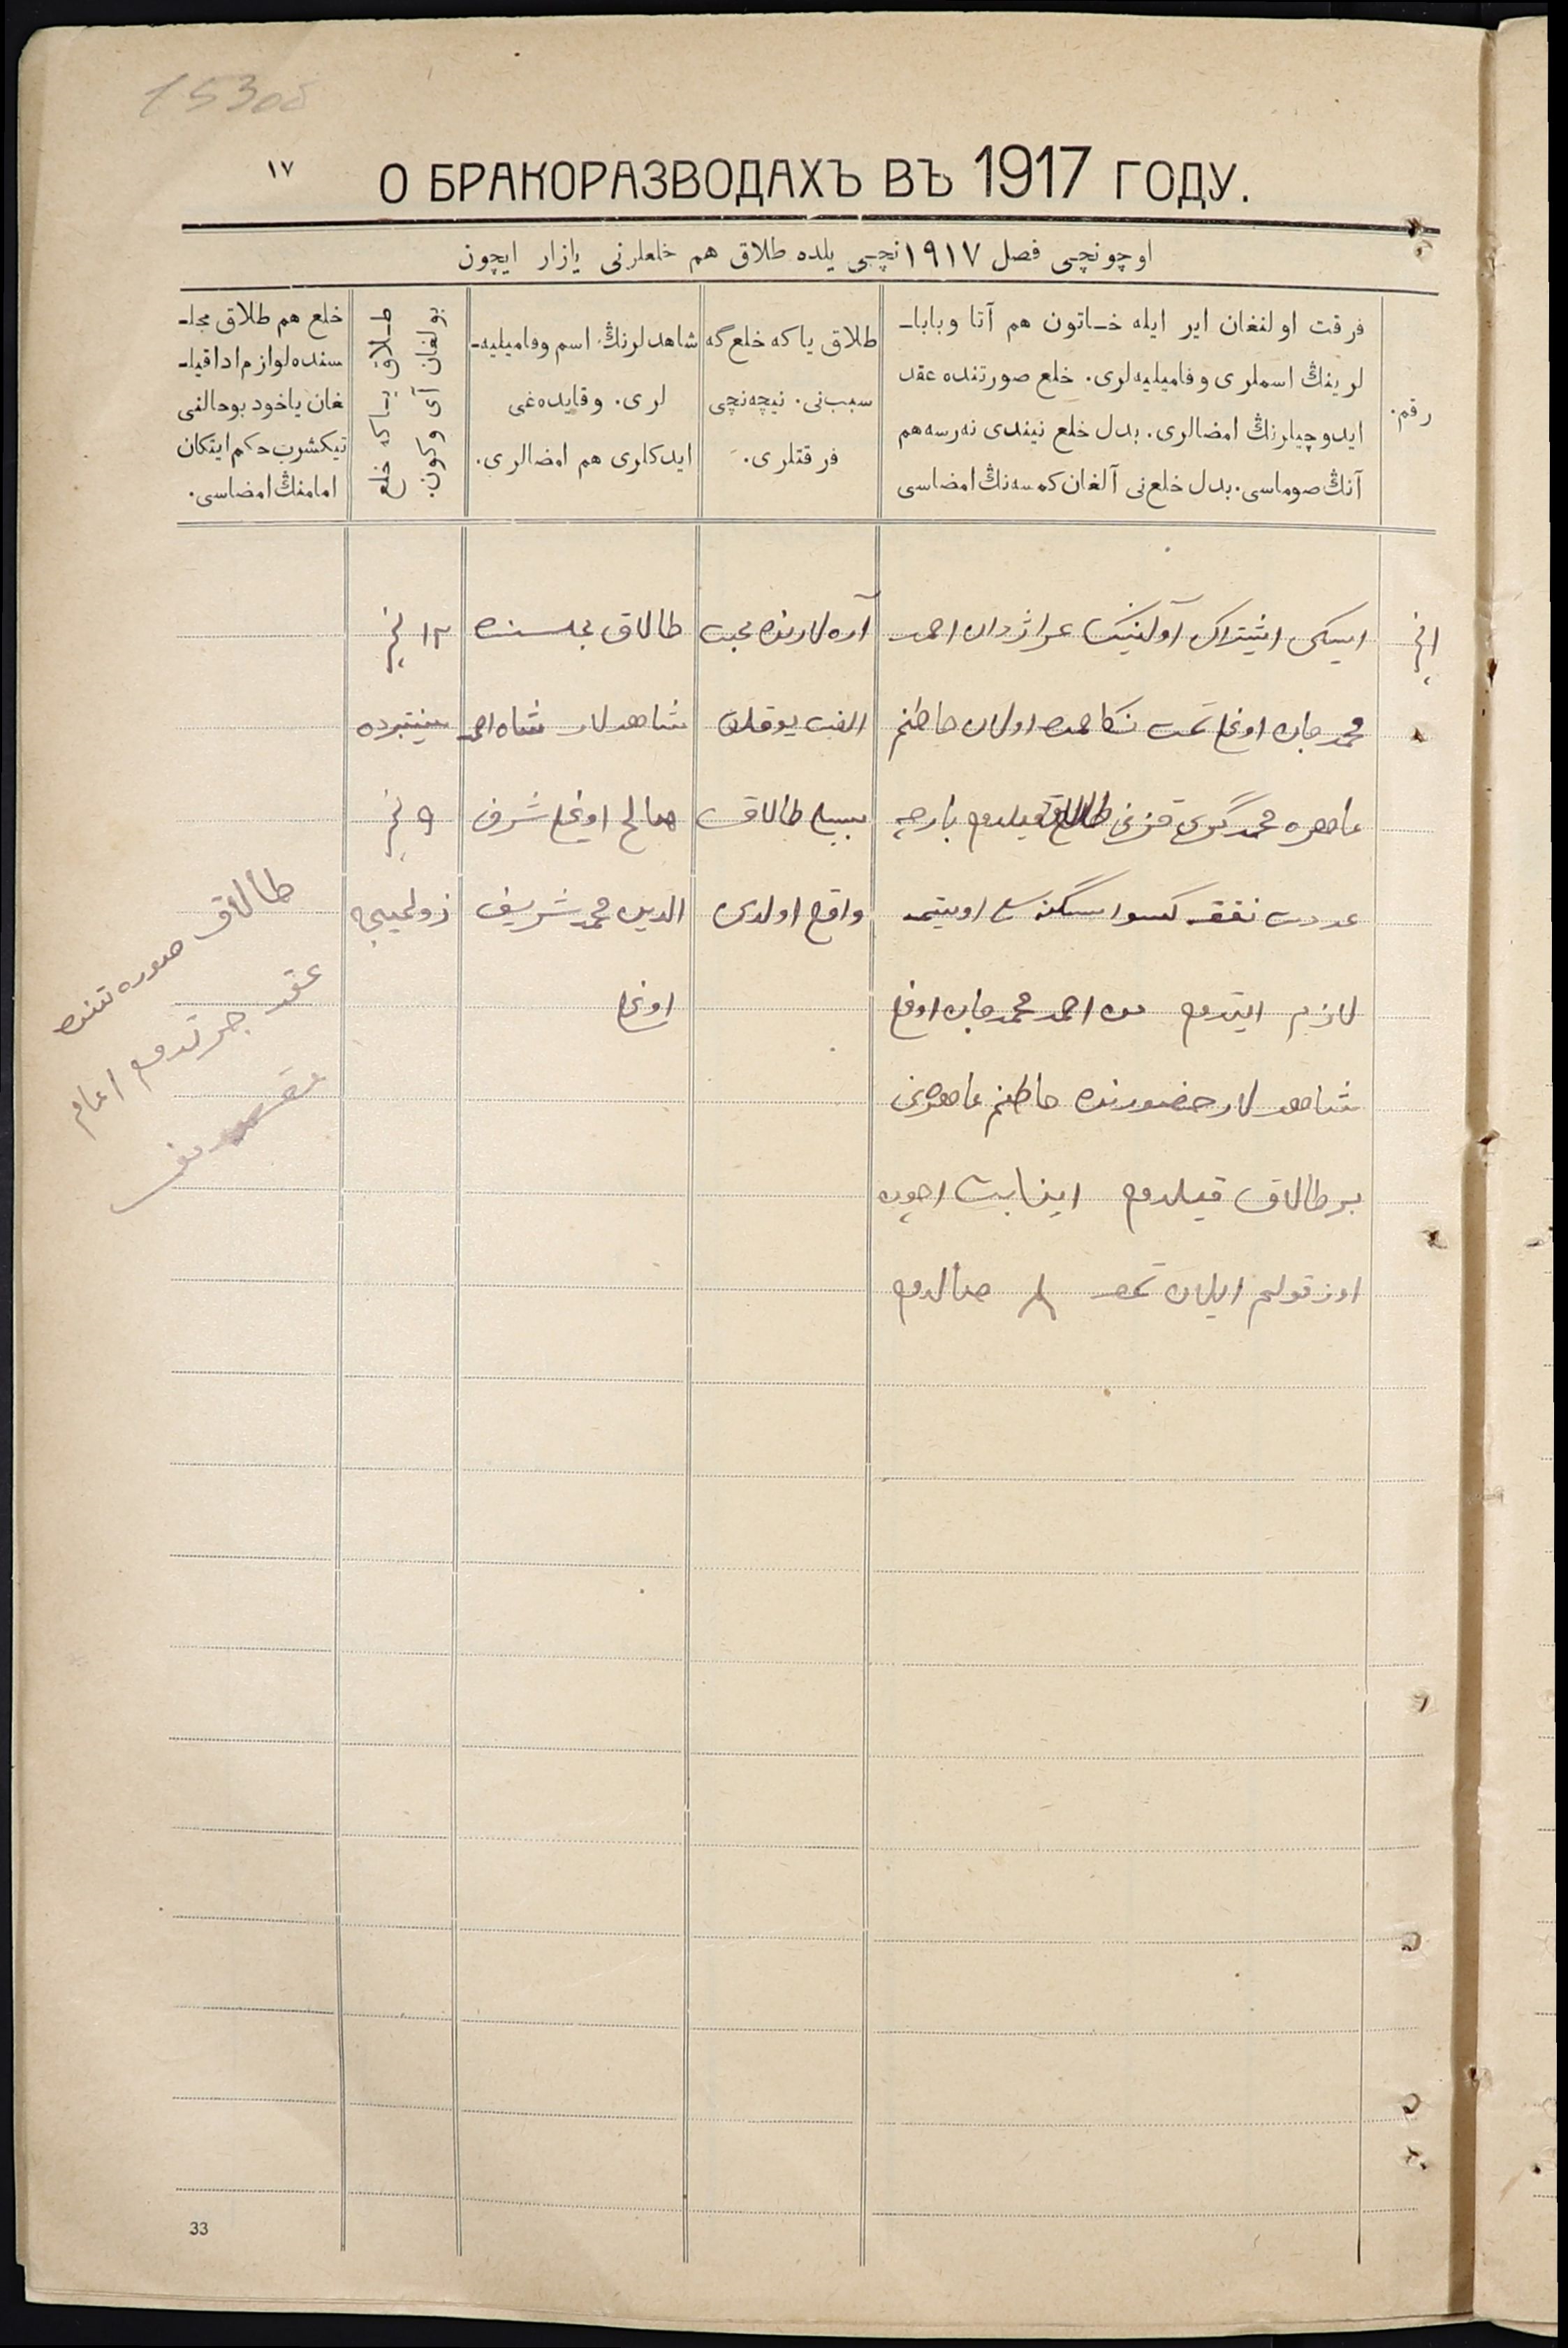 153об
١٧
О БРАКОРАЗВОДАХЪ ВЪ 1917 ГОДУ.
اوچونچی فصل ١٩١٧ نچی یلده طلاق هم خلعلرنی یازار ایچون
رقم.
فرقت اولنغان ایر ایله خـاتون هم آتا وبابا۔
لرینڭ اسملری وفامیلیه‌لری. خلع صورتنده عقد
ایدوچیلرنڭ امضالری. بدل خلع نیندی نه‌رسه هم
آنڭ صوماسی. بدل خلع‌نی آلغان کمسه‌نڭ امضاسی
طلاق یا که خلع گه
سبب‌نی. نیچه‌نچی
فرقتلری.
شاهدلرنڭ اسم وفامیلیه۔
لری. وقایده‌غی
ایدکلری هم امضالری.
طـلاق یـاکه خلع
بولغان آی وکون.
خلع هم طلاق مجلـ
سنده لوازم ادا قیلـ
غان یاخود بو حالنی
تیکشرب حکم ایتکان
امامنڭ امضاسی.
١نچی
ایسکی اشتراک آولینیک احمد
محمدجان اوغلی تحت نکاحمده اولان خاطنم
محمد قزنی طالاق قیلدم بارچه
عددت نفقه کسوا سکنه سی
لازم ایتدم من احمد محمدجان اوغلی
شاهدلار حضورنده خاطنم
بر طالاق قیلدم اچون
اوز قولم ایلان صالدم
آره‌لارنده محبت
الفت یوقلق
سببلی طالاق
واقع اولدی
طالاق مجلسنده
شاهدلار شاه احمد
صالح اوغلی شرف
الدین محمد شریف
اوغلی
١٢ نچی
سینتبرده
٩ نچی
ذولحیجه
طالاق صوره‌تنده
عقد امام
33